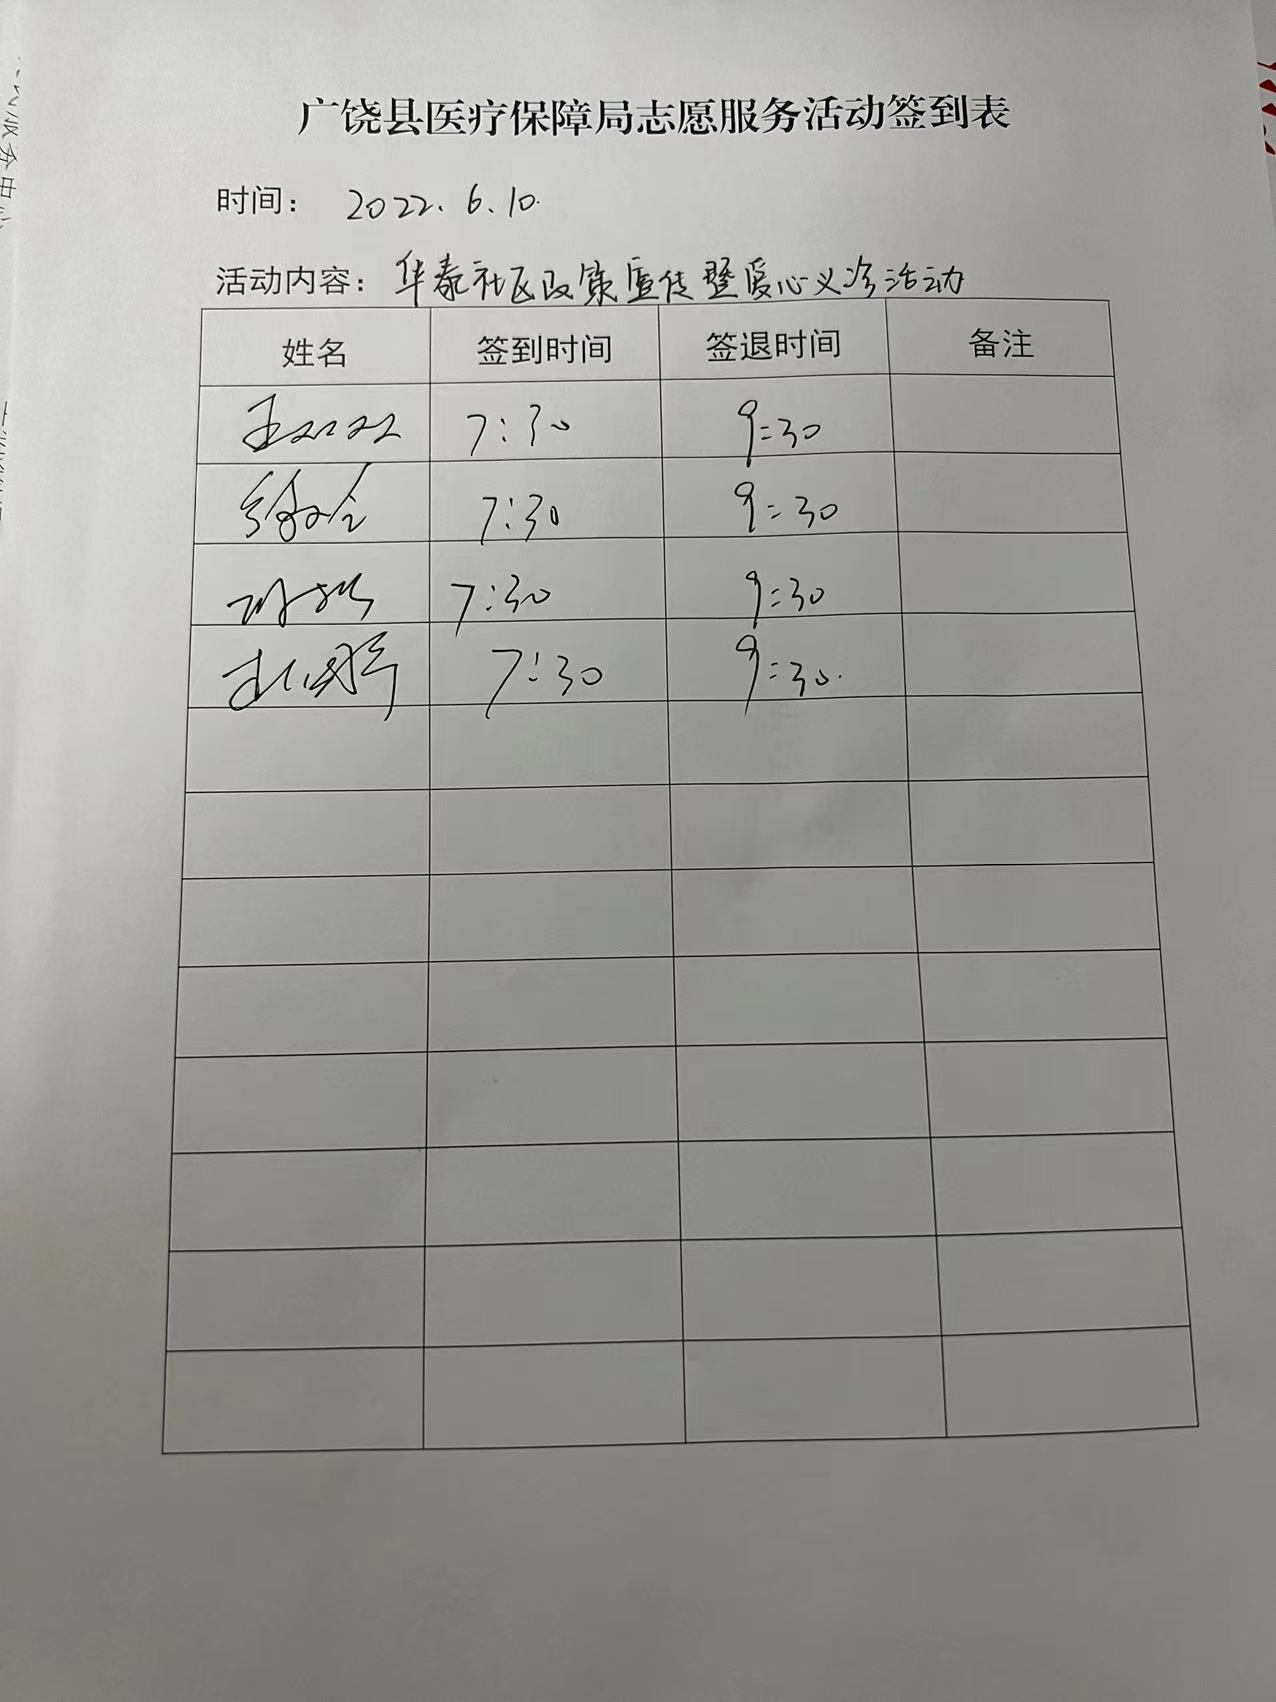 广饶县医疗保障局志愿服务活动签到表
时间： 2022.6.10.
活动内容：华泰社区政策宣传暨爱心义诊活动
姓名 签到时间 签退时间 备注
王双双 7:30 9:30
7:30 9:30
7:30 9:30
7:30 9:30.